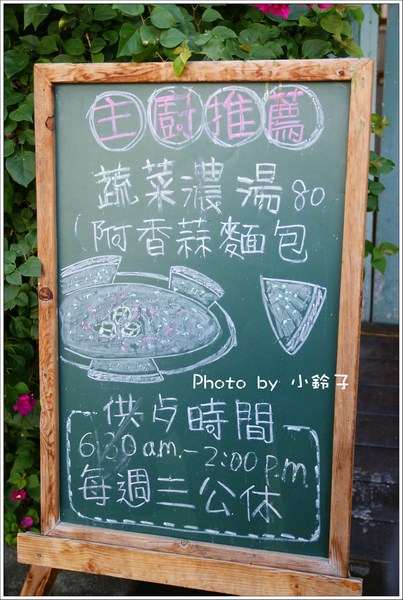 主廚推薦
蔬菜濃湯80
(阿香蒜麵包
Photo by 小鈴子
供歺時間
6:30am.-2:00p.m.
每週三公休